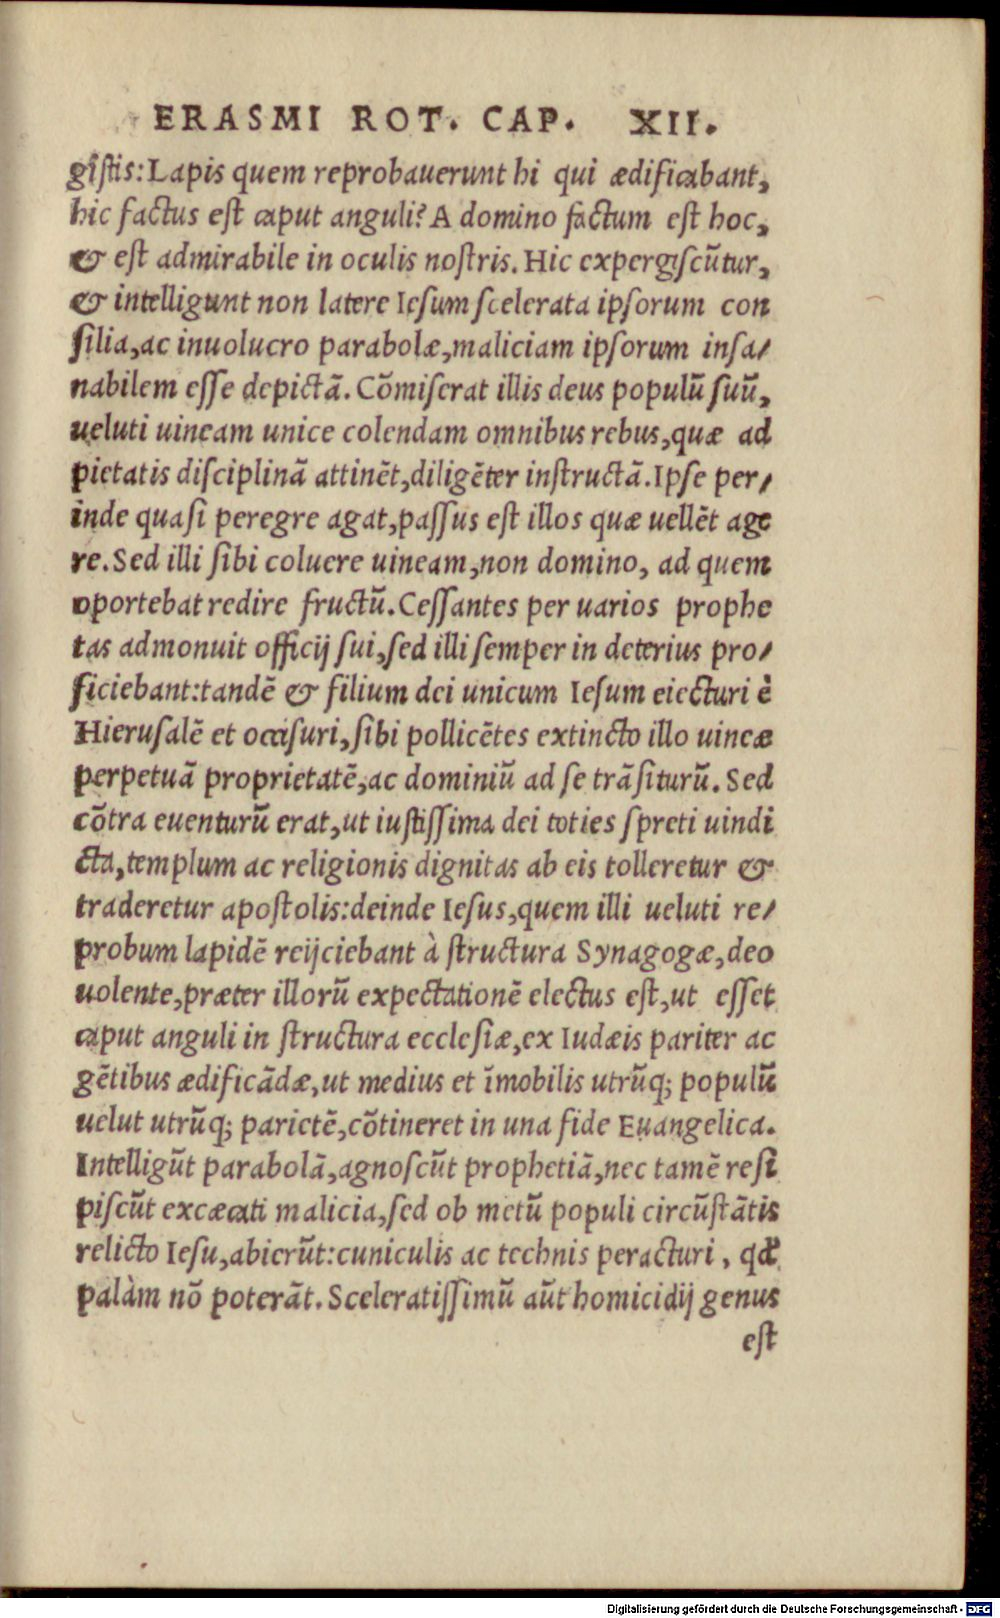 ERASMI ROT. CAP. XII.
gistis: Lapis quem reprobauerunt hi qui ædificabant,
hic factus est caput anguli? A domino factum est hoc,
& est admirabile in oculis nostris. Hic expergiscũtur,
& intelligunt non latere Iesum scelerata ipsorum con
silia, ac inuolucro parabolæ, maliciam ipsorum insa/
nabilem esse depictã. Cõmiserat illis deus populũ suũ,
ueluti uineam unice colendam omnibus rebus, quæ ad
pietatis disciplinã attinẽt, diligẽter instructã. Ipse per/
inde quasi peregre agat, passus est illos quæ uellẽt age
re. Sed illi sibi coluere uineam, non domino, ad quem
oportebat redire fructũ. Cessantes per uarios prophe
tas admonuit officij sui, sed illi semper in deterius pro/
ficiebant: tandẽ & filium dei unicum Iesum eiecturi è
Hierusalẽ et occisuri, sibi pollicẽtes extincto illo uineæ
perpetuã proprietatẽ, ac dominiũ ad se trãsiturũ. Sed
cõtra euenturũ erat, ut iustissima dei toties spreti uindi
cta, templum ac religionis dignitas ab eis tolleretur &
traderetur apostolis: deinde Iesus, quem illi ueluti re/
probum lapidẽ reijciebant à structura Synagogæ, deo
uolente, præter illorũ expectationẽ electus est, ut esset
caput anguli in structura ecclesiæ, ex Iudæis pariter ac
gẽtibus ædificãdæ, ut medius et ĩmobilis utrũq; populũ
uelut utrũq; parietẽ, cõtineret in una fide Euangelica.
Intelligũt parabolã, agnoscũt prophetiã, nec tamẽ resi
piscũt excæcati malicia, sed ob metũ populi circũstãtis
relicto Iesu, abierũt: cuniculis ac technis peracturi, qđ
palàm nõ poterãt. Sceleratissimũ aũt homicidij genus
est
Digitalisierung gefördert durch die Deutsche Forschungsgemeinschaft - DFG